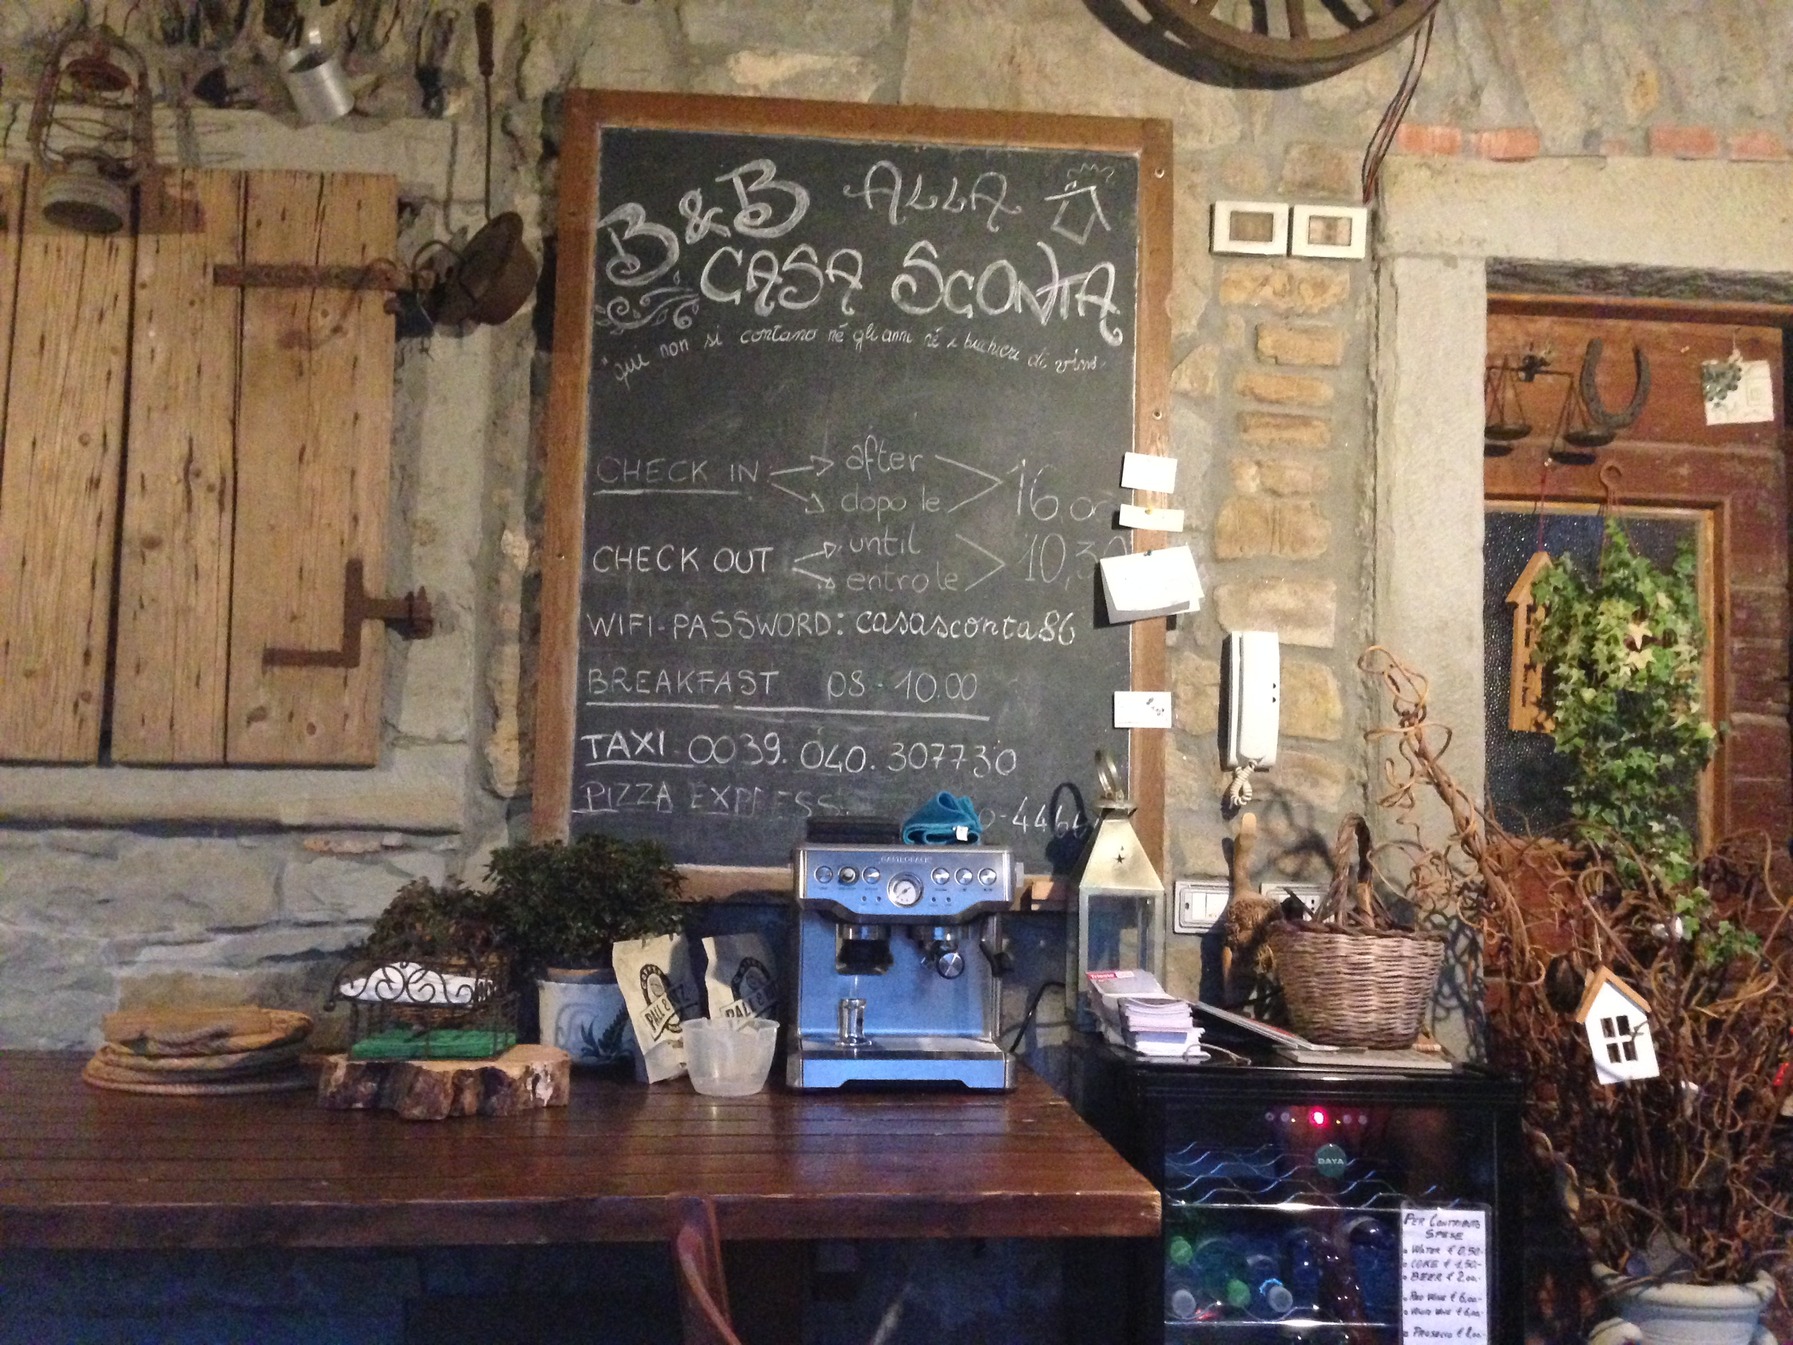 B&B ALLA
CASA SCONTA
"qui non si contano né gli anni né i bicchieri di vino"
CHECK IN after 16,00
dopo le
CHECK OUT until 10,30
entro le
WIFI-PASSWORD: casasconta86
BREAKFAST 08-10.00
TAXI 0039. 040. 307730
PIZZA EXPRESS
PER CONTRIBUTO
SPESE
WATER € 0,50
COKE € 1,50
BEER € 2,00
RED WINE € 6,00
PROSECCO
DAYA